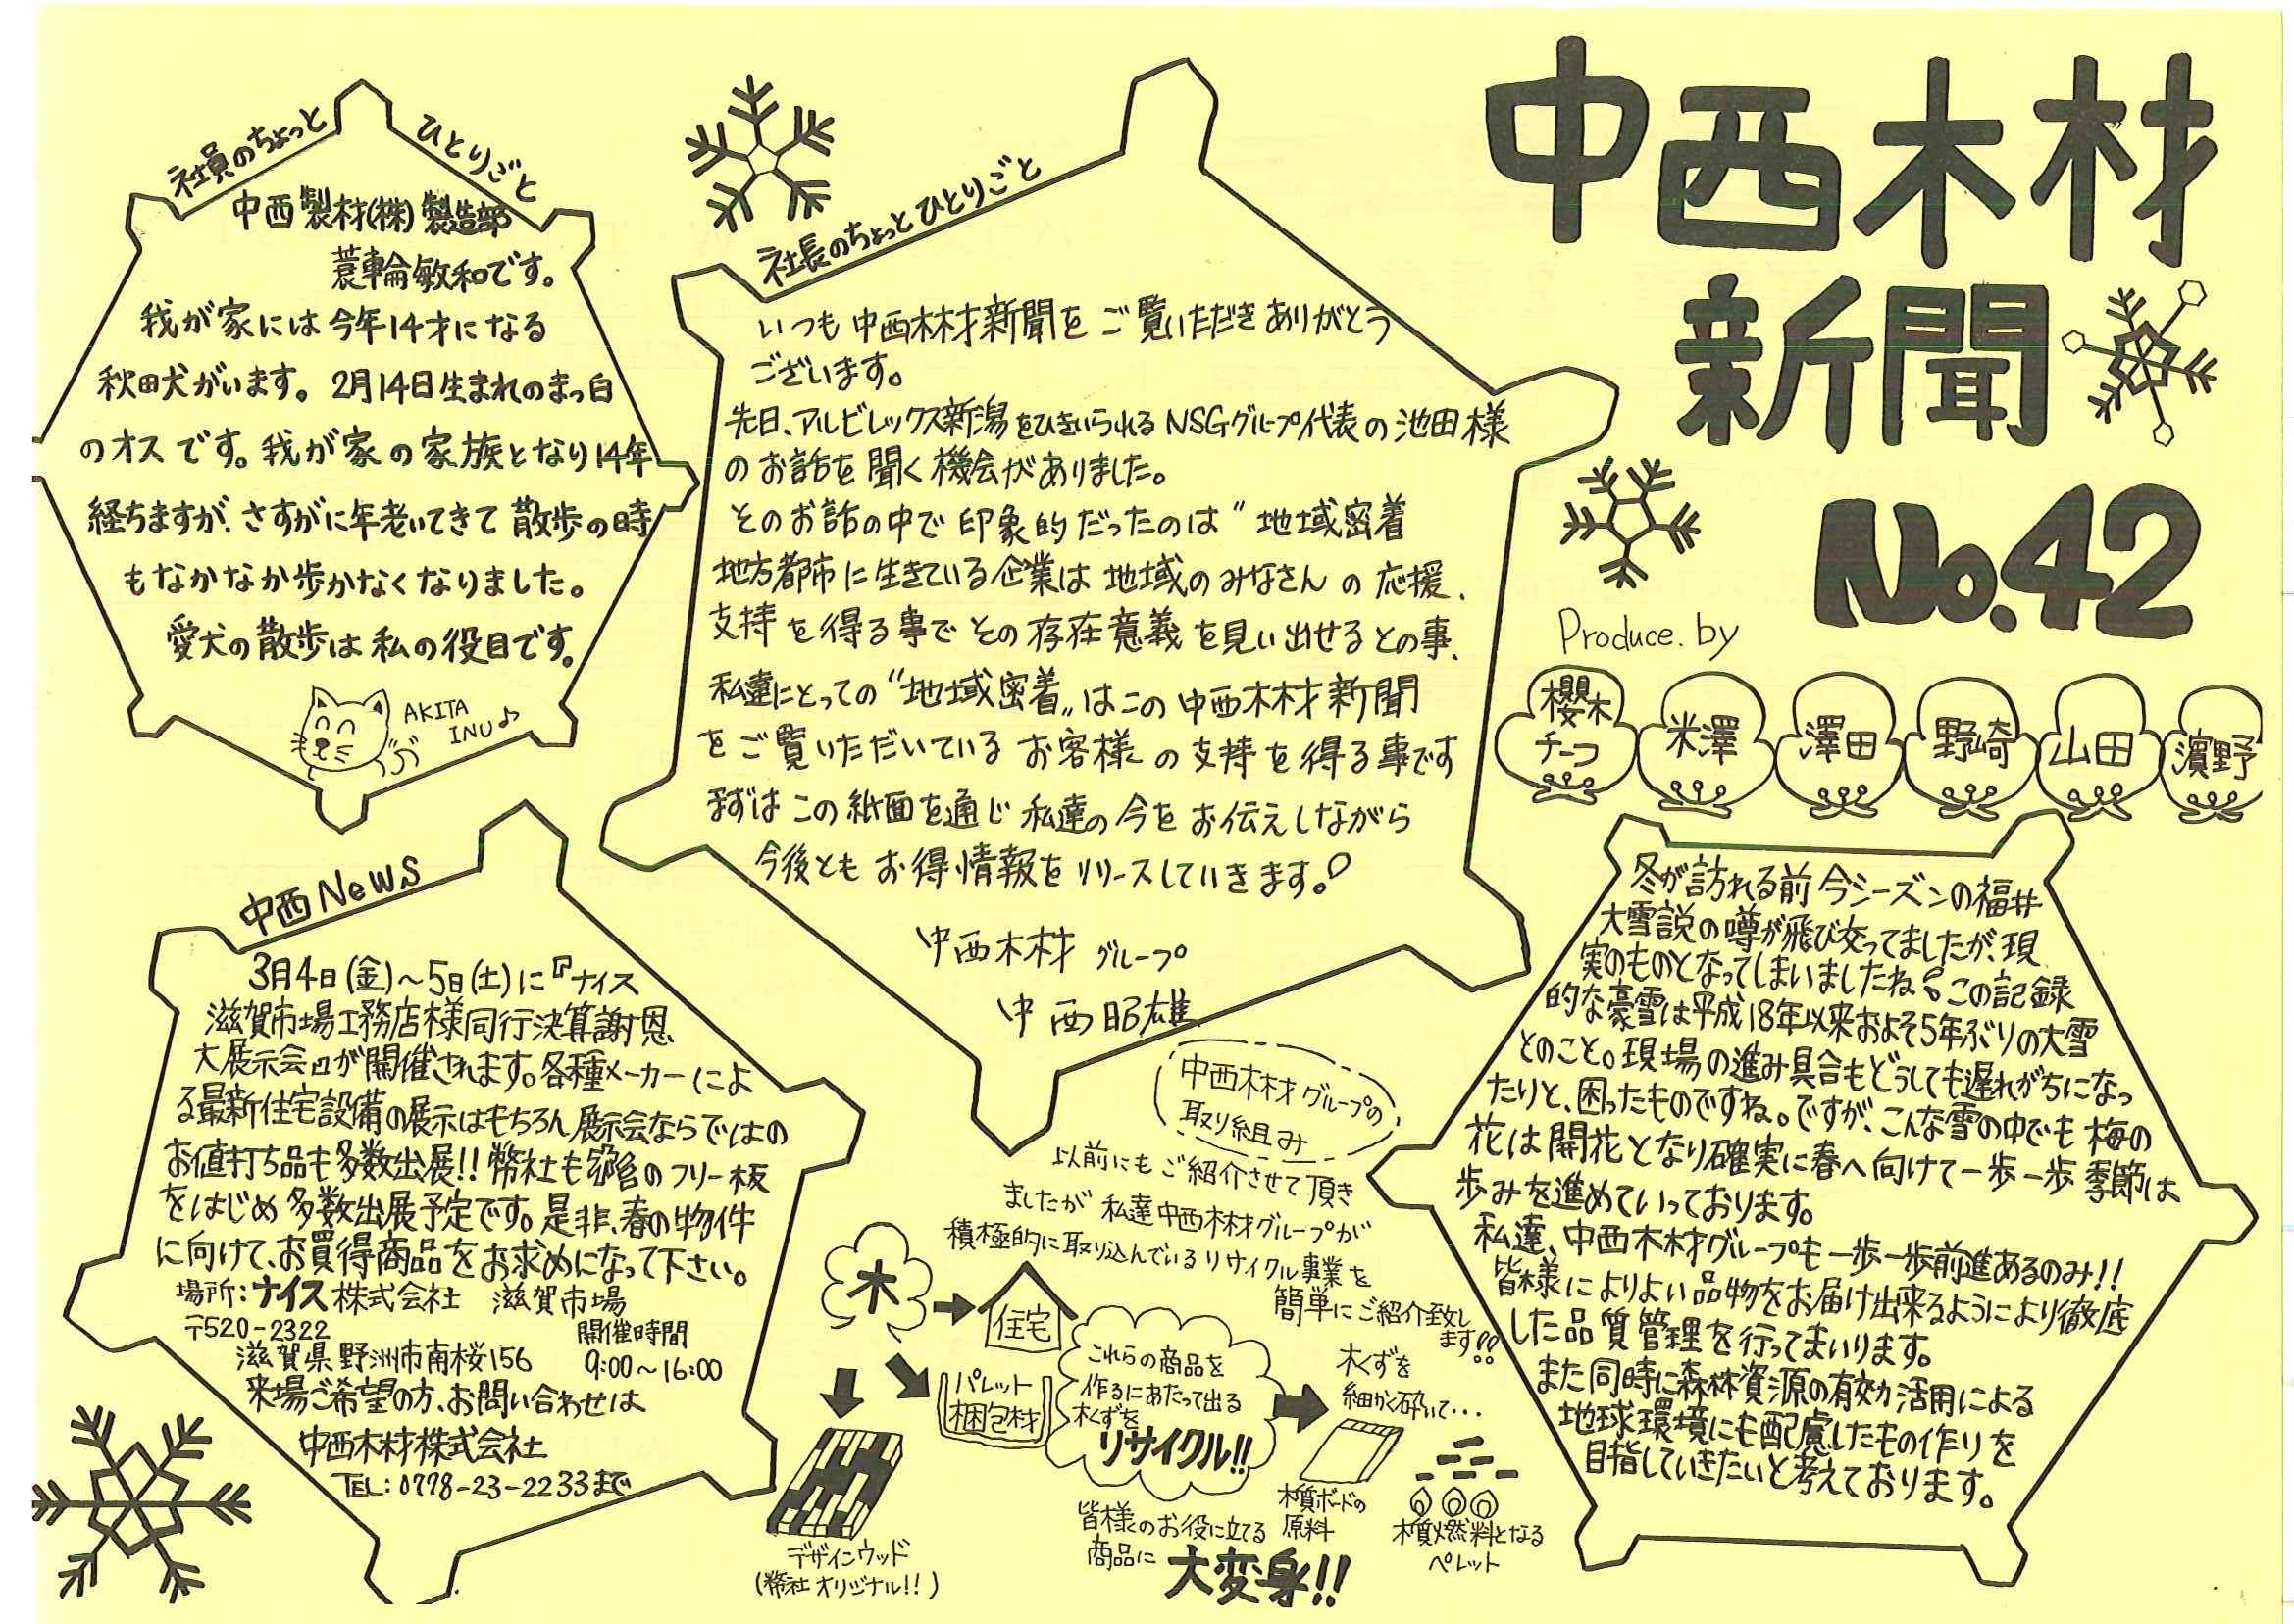 中西木材
新聞
No.42
Produce. by
櫻木
チーフ
米澤
澤田
野崎
山田
濱野
冬が訪れる前 今シーズンの福井
大雪説の噂が飛び交ってましたが、現
実のものとなってしまいましたね この記録
的な豪雪は平成18年以来およそ5年ぶりの大雪
とのこと。現場の進み具合もどうしても遅れがちになっ
たりと、困ったものですね。ですが、こんな雪の中でも梅の
花は開花となり確実に春へ向けて一歩一歩季節は
歩みを進めていっております。
私達、中西木材グループも一歩一歩前進あるのみ!!
皆様によりよい品物をお届け出来るようにより徹底
した品質管理を行ってまいります。
また同時に森林資源の有効活用による
地球環境にも配慮したもの作りを
目指していきたいと考えております。
社長のちょっとひとりごと
いつも中西木材新聞をご覧いただきありがとう
ございます。
先日、アルビレックス新潟をひきいられるNSGグループ代表の池田様
のお話を聞く機会がありました。
そのお話の中で印象的だったのは"地域密着
地方都市に生きている企業は地域のみなさんの応援、
支持を得る事でその存在意義を見い出せるとの事、
私達にとっての"地域密着"はこの中西木材新聞
をご覧いただいているお客様の支持を得る事です
まずはこの紙面を通じ私達の今をお伝えしながら
今後ともお得情報をリリースしていきます。
中西木材グループ
中西昭雄
社員のちょっとひとりごと
中西製材(株)製造部
蓑輪敏和です。
我が家には今年14才になる
秋田犬がいます。2月14日生まれのまっ白
のオスです。我が家の家族となり14年
経ちますが、さすがに年老いてきて散歩の時
もなかなか歩かなくなりました。
愛犬の散歩は私の役目です。
AKITA
INU♪
中西NeWS
3月4日(金)～5日(土)に『ナイス
滋賀市場工務店様同行決算謝恩
大展示会』が開催されます。各種メーカーによ
る最新住宅設備の展示はもちろん展示会ならではの
お値打ち品も多数出展!!弊社も のフリー板
をはじめ多数出展予定です。是非、春の物件
に向けて、お買得商品をお求めになって下さい。
場所：ナイス株式会社 滋賀市場
〒520-2322
滋賀県野洲市南桜156
開催時間
9:00～16:00
来場ご希望の方、お問い合わせは
中西木材株式会社
TEL：0778-23-2233まで
中西木材グループの
取り組み
以前にもご紹介させて頂き
ましたが私達中西木材グループが
積極的に取り込んでいるリサイクル事業を
簡単にご紹介致し
ます!!
木
住宅
パレット
梱包材
デザインウッド
(弊社オリジナル!!)
これらの商品を
作るにあたって出る
木くずを
リサイクル!!
木くずを
細かく砕いて...
木質ボードの
原料
木質燃料となる
ペレット
皆様のお役に立てる
商品に 大変身!!